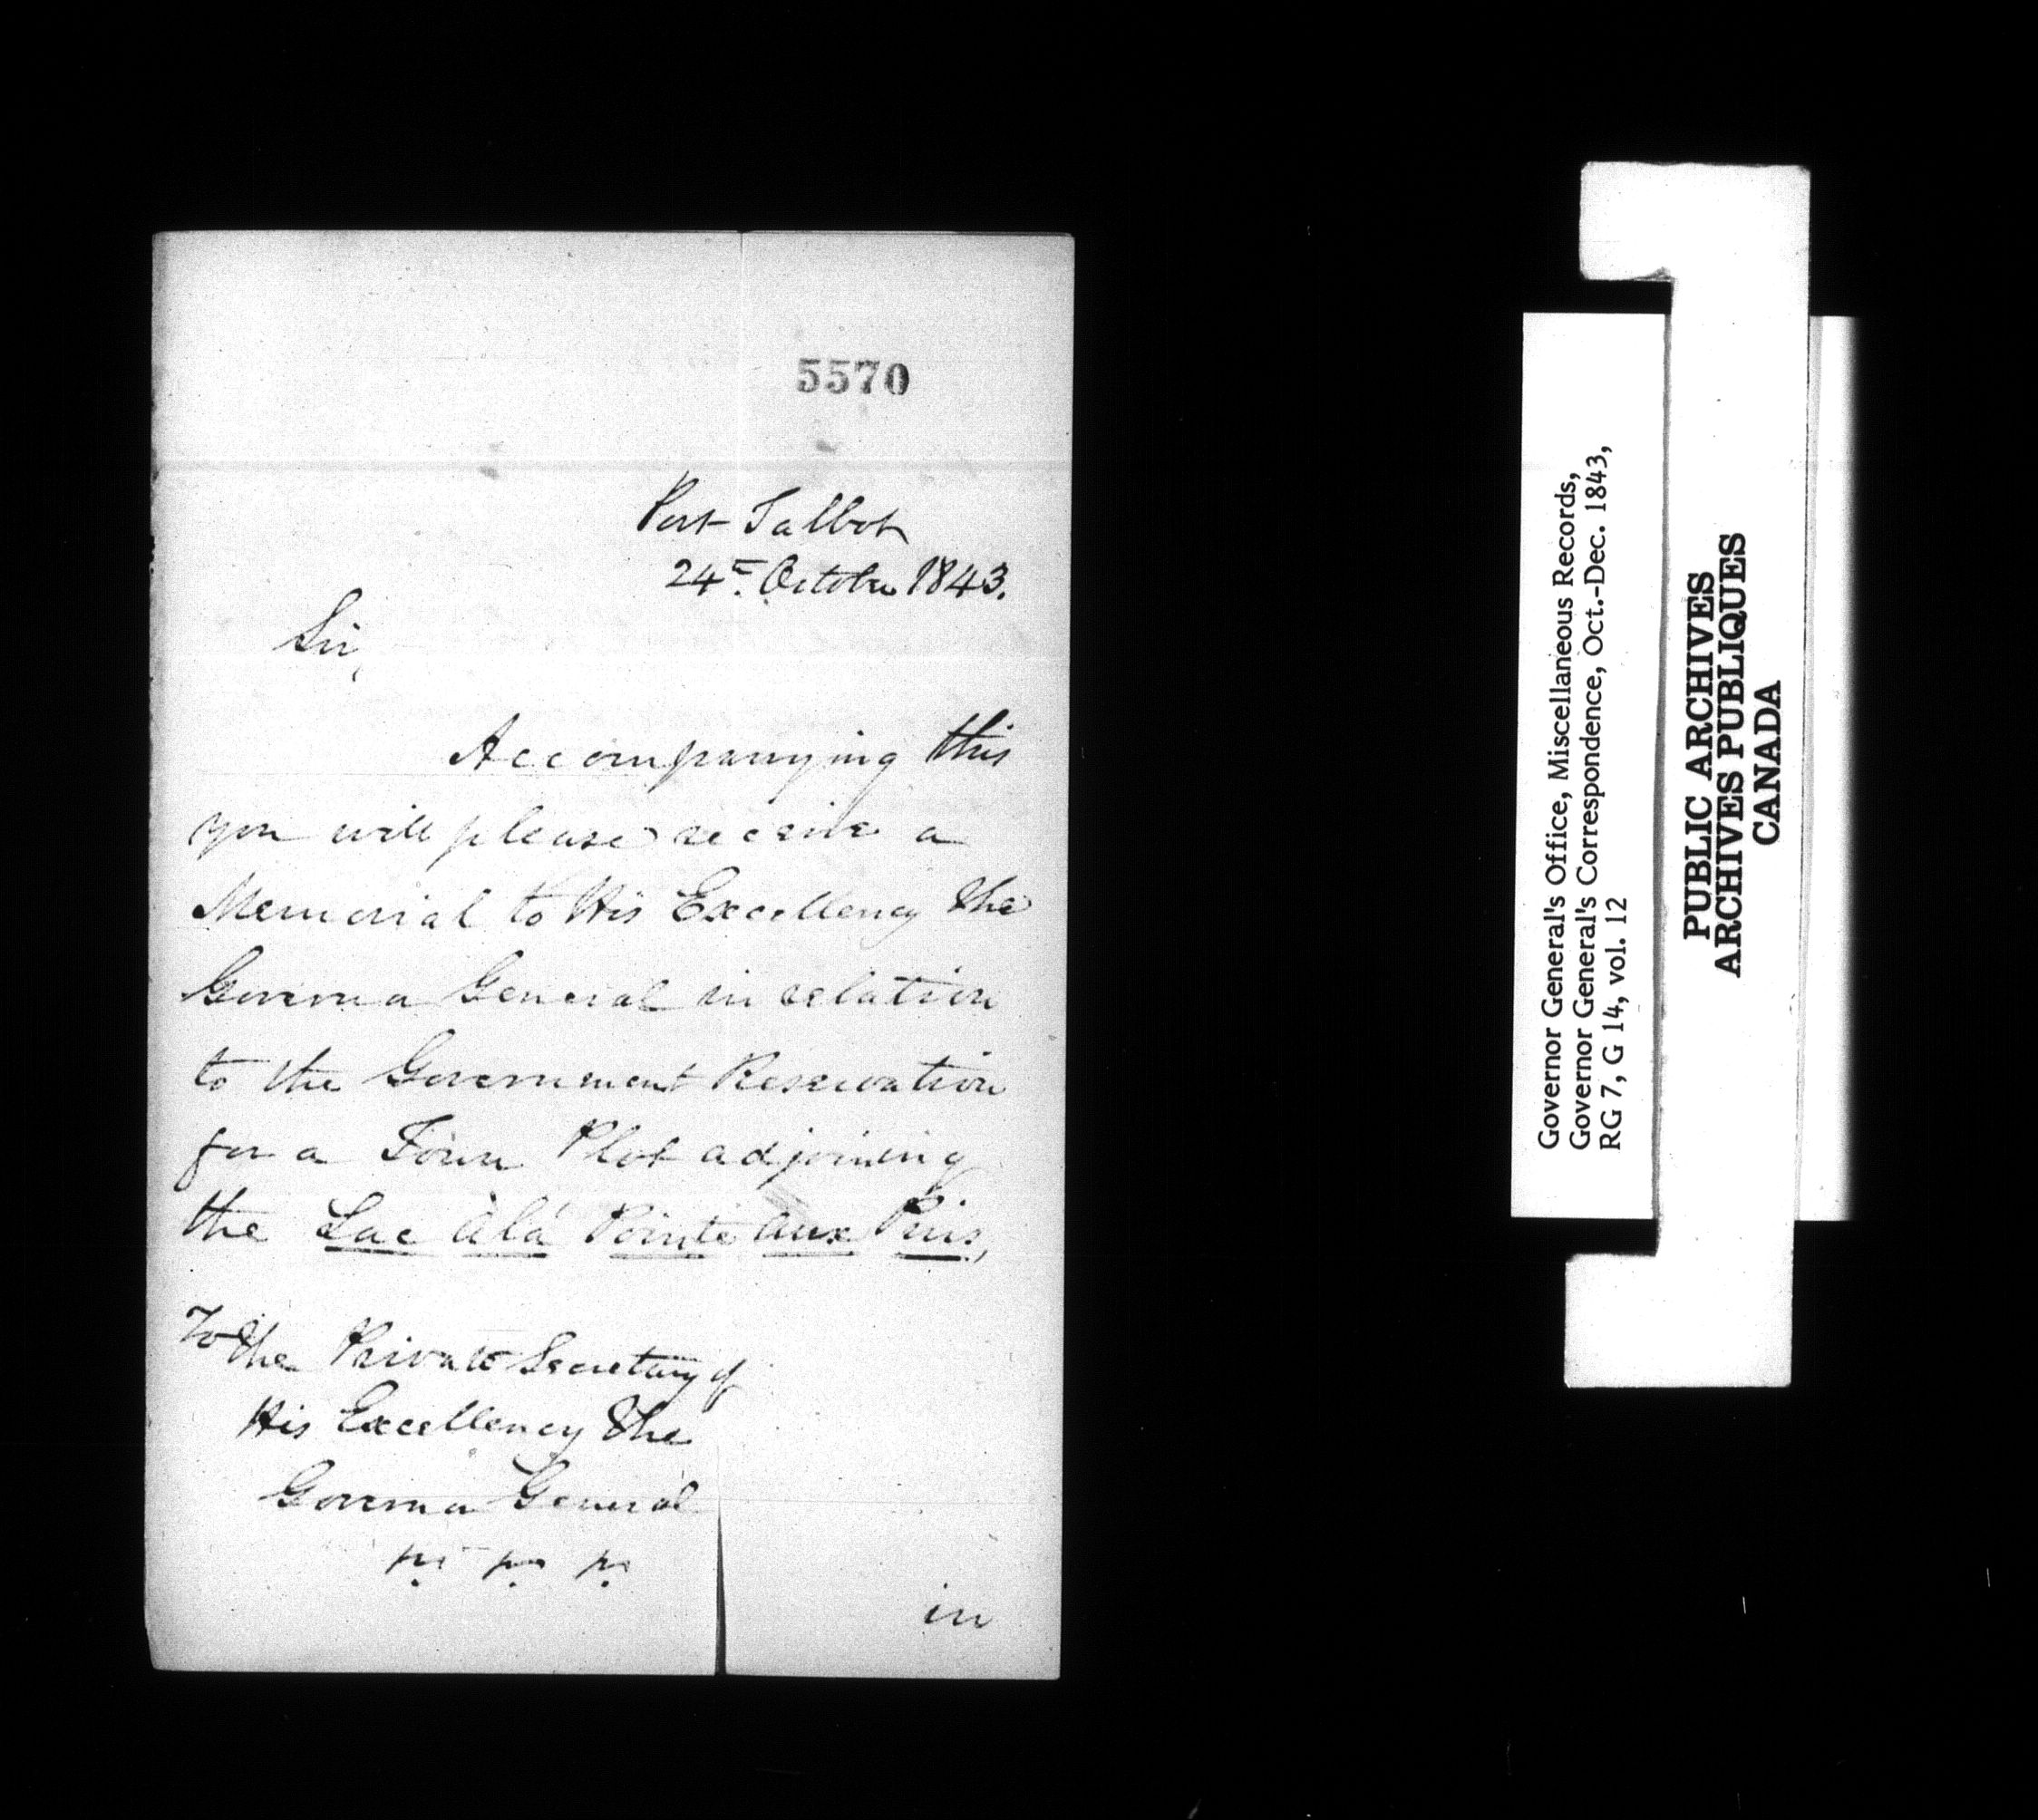 5570
Port Talbot
24th. October 1843.
Sir,
Accompanying this
you will please receive a
Memorial to His Excellency The
Governor General in relation
to the Government Reservation
for a Town Plot adjoining
the Lac à la Pointe aux Pins,
To The Private Secretary of
His Excellency The
Governor General
in
Governor General's Office, Miscellaneous Records,
Governor General's Correspondence, Oct.-Dec. 1843,
RG 7, G 14, vol. 12
PUBLIC ARCHIVES
ARCHIVES PUBLIQUES
CANADA